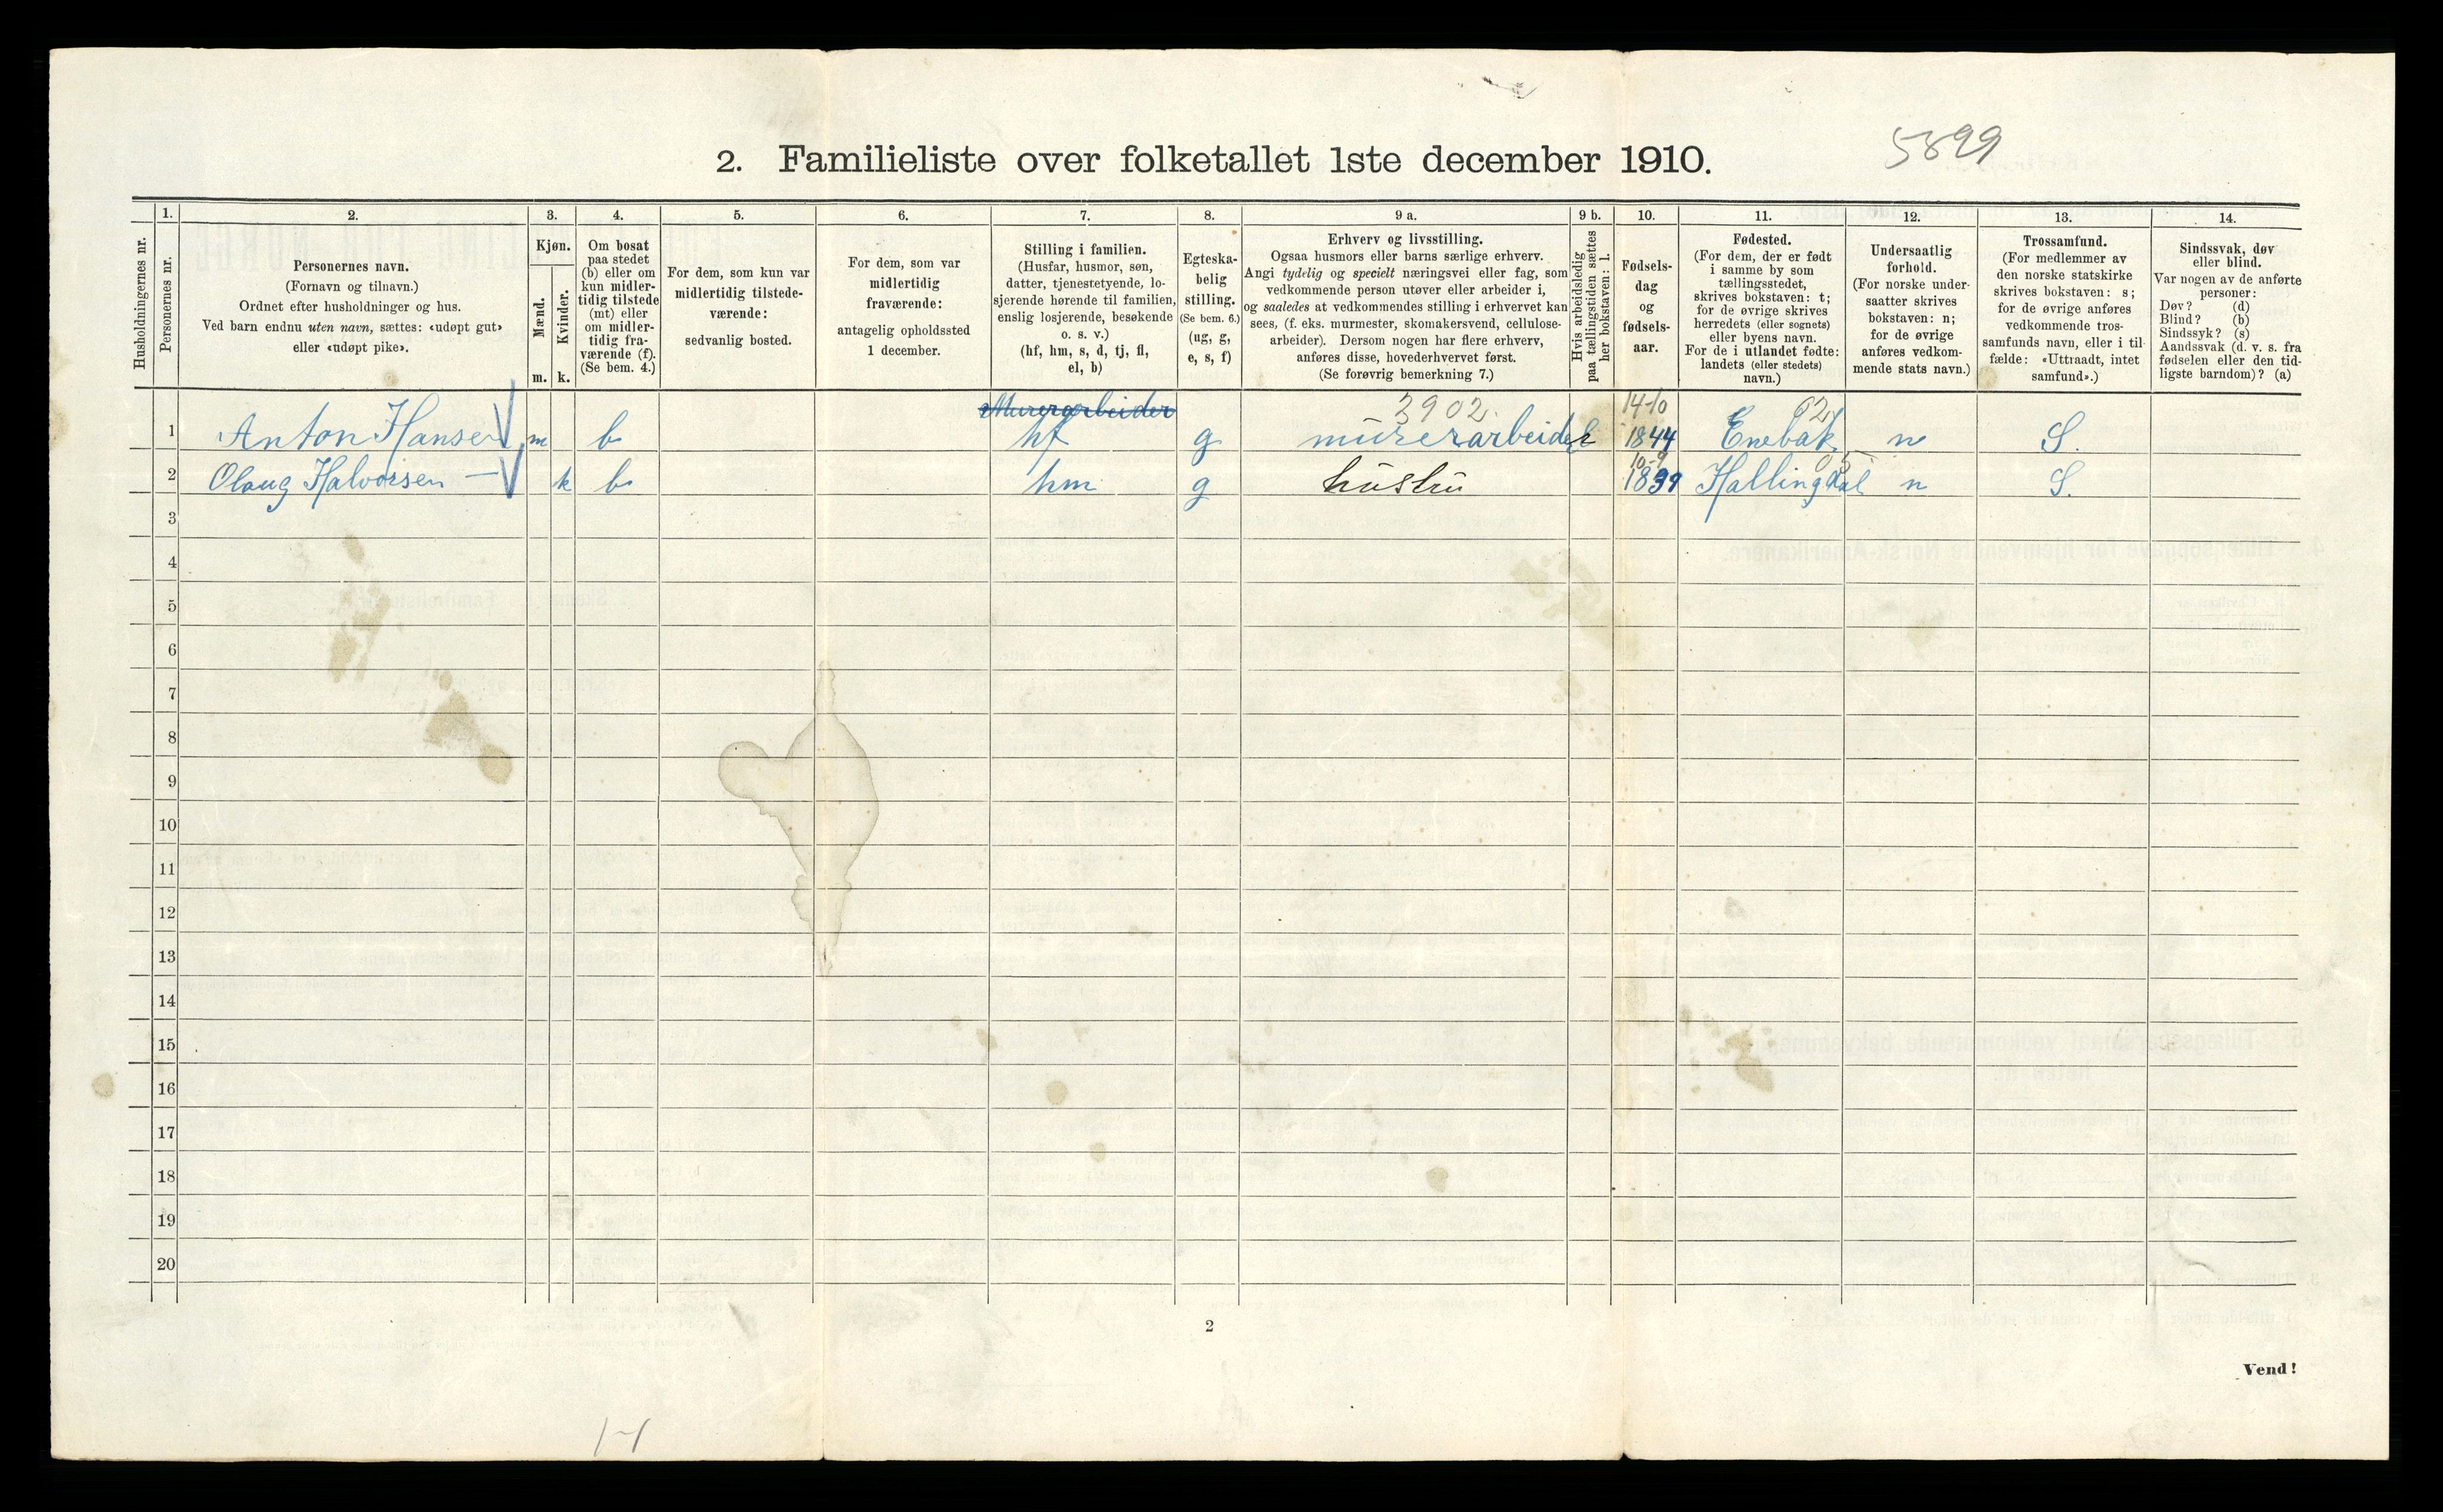 5899
2. Familieliste over folketallet 1ste december 1910.
Husholdningernes nr.
1.
Personernes nr.
2.
Personernes navn.
(Fornavn og tilnavn.)
Ordnet efter husholdninger og hus.
Ved barn endnu uten navn, sættes: «udøpt gut»
eller «udøpt pike».
3.
Kjøn.
Mænd.
Kvinder.
m. k.
4.
Om bosat
paa stedet
(b) eller om
kun midler-
tidig tilstede
(mt) eller
om midler-
tidig fra-
værende (f).
(Se bem. 4.)
5.
For dem, som kun var
midlertidig tilstede-
værende:
sedvanlig bosted.
6.
For dem, som var
midlertidig
fraværende:
antagelig opholdssted
1 december.
7.
Stilling i familien.
(Husfar, husmor, søn,
datter, tjenestetyende, lo-
sjerende hørende til familien,
enslig losjerende, besøkende
o. s. v.)
(hf, hm, s, d, tj, fl,
el, b)
8.
Egteska-
belig
stilling.
(Se bem. 6.)
(ug, g,
e, s, f)
9 a.
Erhverv og livsstilling.
Ogsaa husmors eller barns særlige erhverv.
Angi tydelig og specielt næringsvei eller fag, som
vedkommende person utøver eller arbeider i,
og saaledes at vedkommendes stilling i erhvervet kan
sees, (f. eks. murmester, skomakersvend, cellulose-
arbeider). Dersom nogen har flere erhverv,
anføres disse, hovederhvervet først.
(Se forøvrig bemerkning 7.)
9 b.
Hvis arbeidsledig
paa tællingstiden sættes
her bokstaven: l.
10.
Fødsels-
dag
og
fødsels-
aar.
11.
Fødested.
(For dem, der er født
i samme by som
tællingsstedet,
skrives bokstaven: t;
for de øvrige skrives
herredets (eller sognets)
eller byens navn.
For de i utlandet fødte:
landets (eller stedets)
navn.)
12.
Undersaatlig
forhold.
(For norske under-
saatter skrives
bokstaven: n;
for de øvrige
anføres vedkom-
mende stats navn.)
13.
Trossamfund.
(For medlemmer av
den norske statskirke
skrives bokstaven: s;
for de øvrige anføres
vedkommende tros-
samfunds navn, eller i til-
fælde: «Uttraadt, intet
samfund».)
14.
Sindssvak, døv
eller blind.
Var nogen av de anførte
personer:
Døv? (d)
Blind? (b)
Sindssyk? (s)
Aandssvak (d. v. s. fra
fødselen eller den tid-
ligste barndom)? (a)
Murerarbeider 3902. 14-10 02
1 Anton Hansen m b hf g murerarbeider 1844 Enebak n S.
10-9 05
2 Olaug Halvorsen — k b hm g hustru 1839 Hallingdal n S.
3
4
5
6
7
8
9
10
11
12
13
14
15
16
17
18
19
20
2
Vend!
1-1